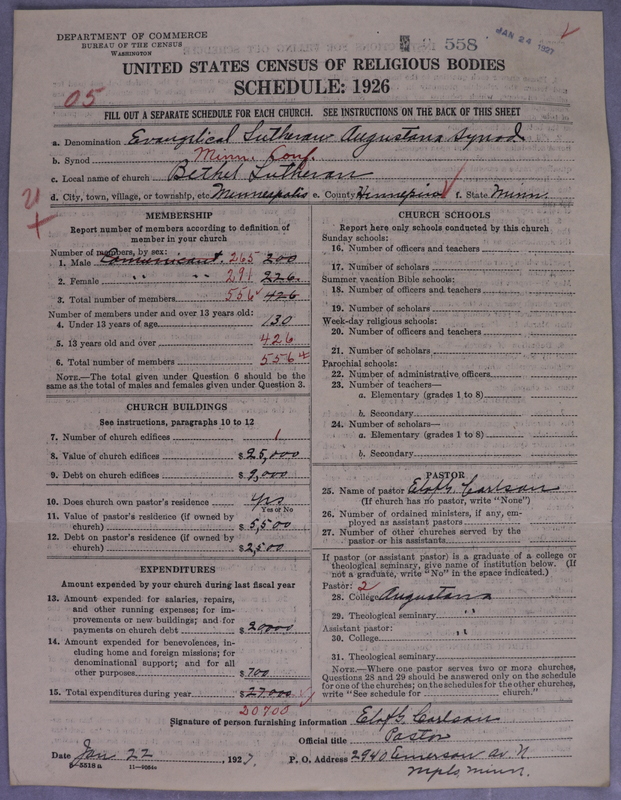 DEPARTMENT OF COMMERCE
BUREAU OF THE CENSUS
WASHINGTON
558
JAN 24 1927
UNITED STATES CENSUS OF RELIGIOUS BODIES
SCHEDULE: 1926
05
FILL OUT A SEPARATE SCHEDULE FOR EACH CHURCH. SEE INSTRUCTIONS ON THE BACK OF THIS SHEET
a. Denomination Evangelical Lutheran Augustana Synod
b. Synod Minn. Conf.
c. Local name of church Bethel Lutheran
d. City, town, village, or township, etc. Minneapolis e. County Hennepin f. State Minn.
MEMBERSHIP
Report number of members according to definition of
member in your church
Number of members, by sex:
1. Male Communicant. 265 200
2. Female " " 291 226
3. Total number of members 556 426
Number of members under and over 13 years old:
4. Under 13 years of age 130
5. 13 years old and over 426
6. Total number of members 556
NOTE.—The total given under Question 6 should be the
same as the total of males and females given under Question 3.
CHURCH BUILDINGS
See instructions, paragraphs 10 to 12
7. Number of church edifices 1
8. Value of church edifices $ 25,000
9. Debt on church edifices $ 9,000
10. Does church own pastor's residence yes
Yes or No
11. Value of pastor's residence (if owned by
church) $ 5,500
12. Debt on pastor's residence (if owned by
church) $ 2,500
EXPENDITURES
Amount expended by your church during last fiscal year
13. Amount expended for salaries, repairs,
and other running expenses; for im-
provements or new buildings; and for
payments on church debt $ 20000
14. Amount expended for benevolences, in-
cluding home and foreign missions; for
denominational support; and for all
other purposes $ 700
15. Total expenditures during year $ 27,000
20700
CHURCH SCHOOLS
Report here only schools conducted by this church
Sunday schools:
16. Number of officers and teachers
17. Number of scholars
Summer vacation Bible schools:
18. Number of officers and teachers
19. Number of scholars
Week-day religious schools:
20. Number of officers and teachers
21. Number of scholars
Parochial schools:
22. Number of administrative officers
23. Number of teachers—
a. Elementary (grades 1 to 8)
b. Secondary
24. Number of scholars—
a. Elementary (grades 1 to 8)
b. Secondary
PASTOR
25. Name of pastor Elof G. Carlson
(If church has no pastor, write "None")
26. Number of ordained ministers, if any, em-
ployed as assistant pastors
27. Number of other churches served by the
pastor or his assistants
If pastor (or assistant pastor) is a graduate of a college or
theological seminary, give name of institution below. (If
not a graduate, write "No" in the space indicated.)
Pastor: 2
28. College Augustana
29. Theological seminary "
Assistant pastor:
30. College "
31. Theological seminary
NOTE.—Where one pastor serves two or more churches,
Questions 28 and 29 should be answered only on the schedule
for one of the churches; on the schedules for the other churches,
write "See schedule for church."
Signature of person furnishing information Elof G. Carlson
Official title Pastor
Date Jan 22, 1927. P. O. Address 2940 Emerson av. N
Mpls. Minn.
8—5518a 11—9064a